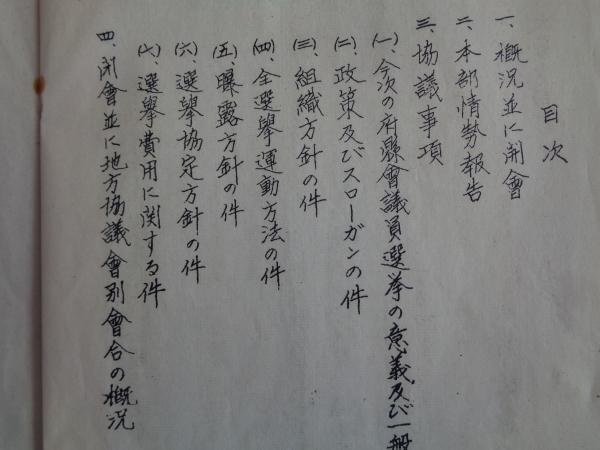 目次
一、概況並に開會
二、本部情勢報告
三、協議事項
(一)、今次の府縣會議員選挙の意義及び一般
(二)、政策及びスローガンの件
(三)、組織方針の件
(四)、全選擧運動方法の件
(五)、曝露方針の件
(六)、選擧協定方針の件
(七)、選擧費用に関する件
四、閉會並に地方協議會別會合の概況